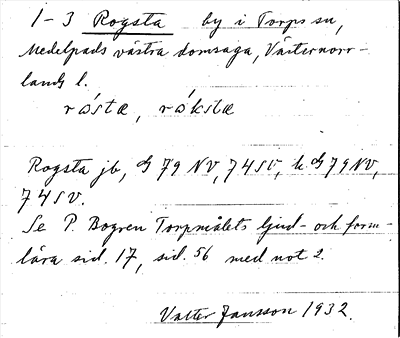 1-3 Rogsta by i Torps sn,
Medelpads västra domsaga, Västernorr-
lands l.
rósta, róksta
Rogsta jb, G 79 NV, 74 SV, k G 79 NV,
74 SV.
Se P. Bogren Torpmålets ljud- och form-
lära sid. 17, sid. 56 med not 2.
Valter Jansson 1932.